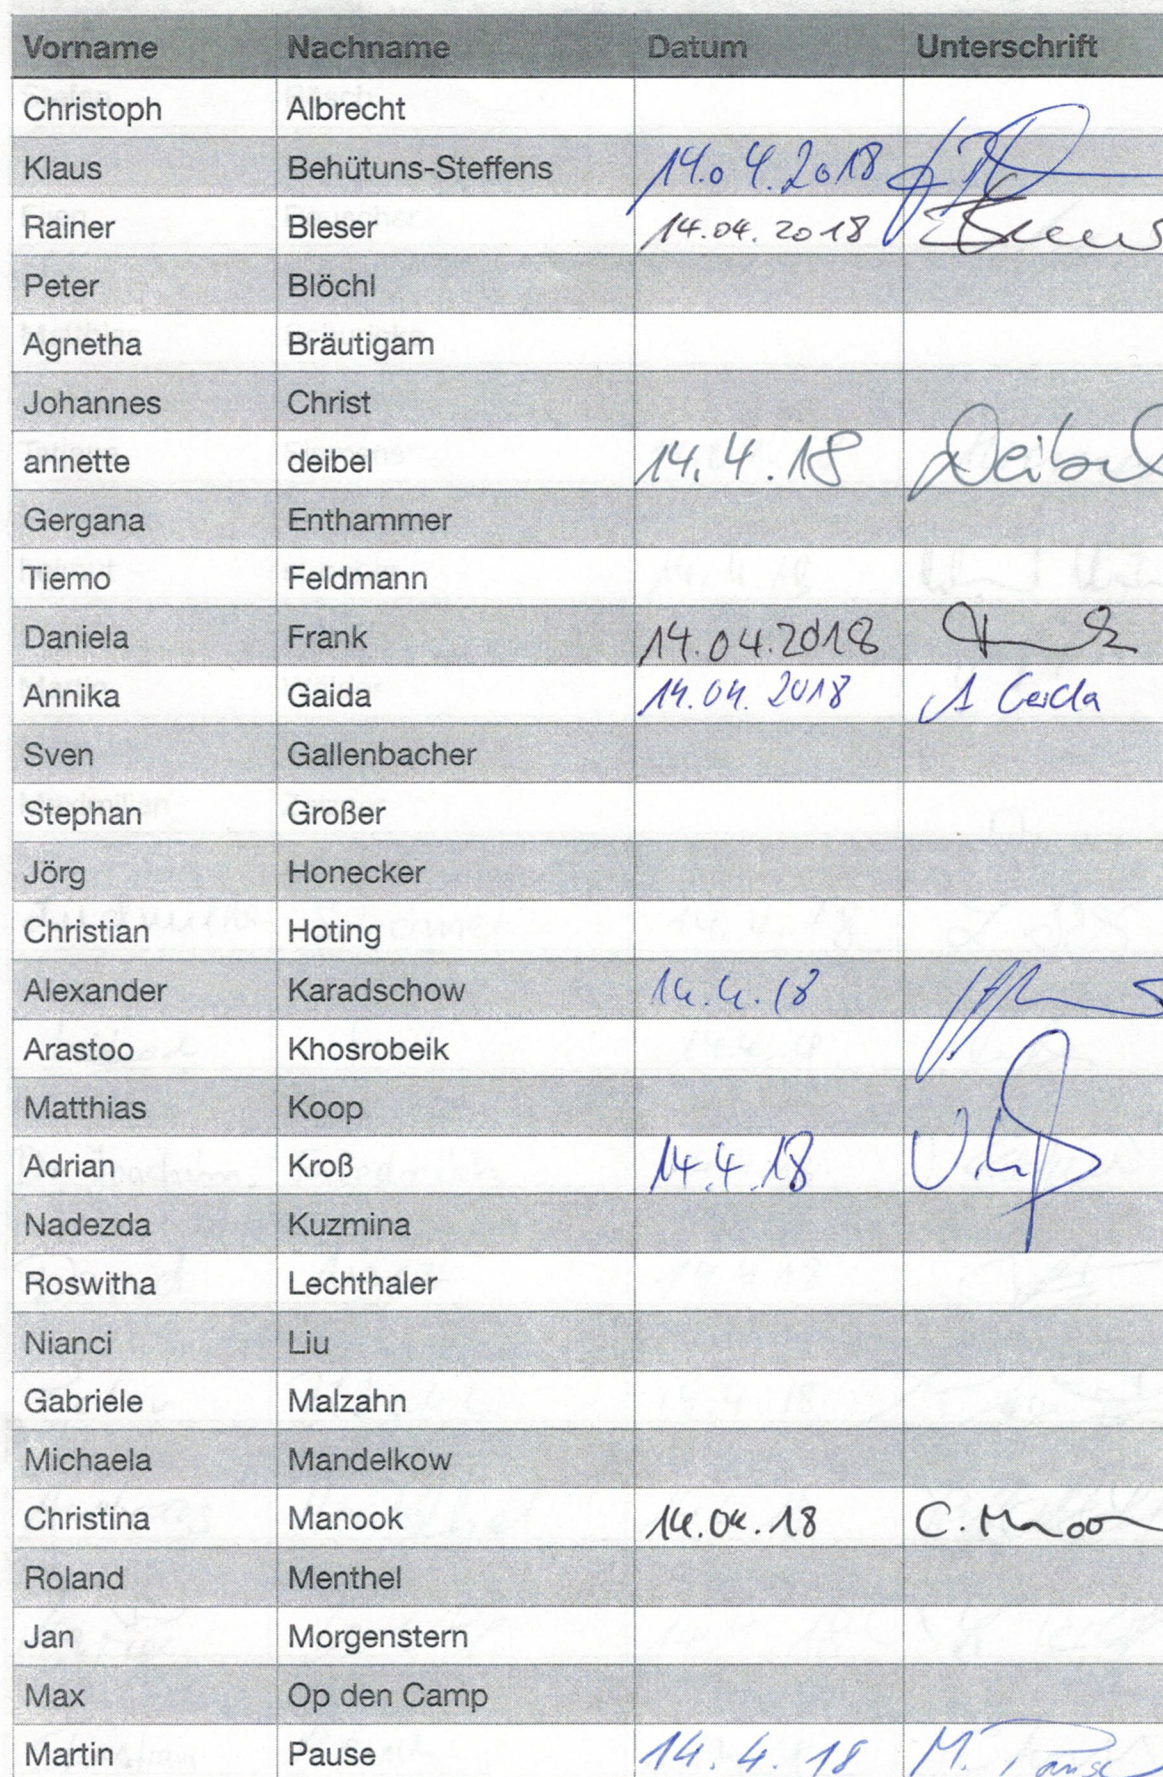 Vorname Nachname Datum Unterschrift
Christoph Albrecht
Klaus Behütuns-Steffens 14.04.2018
Rainer Bleser 14.04.2018
Peter Blöchl
Agnetha Bräutigam
Johannes Christ
annette deibel 14.4.18 Deibel
Gergana Enthammer
Tiemo Feldmann
Daniela Frank 14.04.2018
Annika Gaida 14.04.2018 A Gaida
Sven Gallenbacher
Stephan Großer
Jörg Honecker
Christian Hoting
Alexander Karadschow 14.4.18
Arastoo Khosrobeik
Matthias Koop
Adrian Kroß 14.4.18
Nadezda Kuzmina
Roswitha Lechthaler
Nianci Liu
Gabriele Malzahn
Michaela Mandelkow
Christina Manook 14.04.18 C. Manoo
Roland Menthel
Jan Morgenstern
Max Op den Camp
Martin Pause 14.4.18 M. Pause